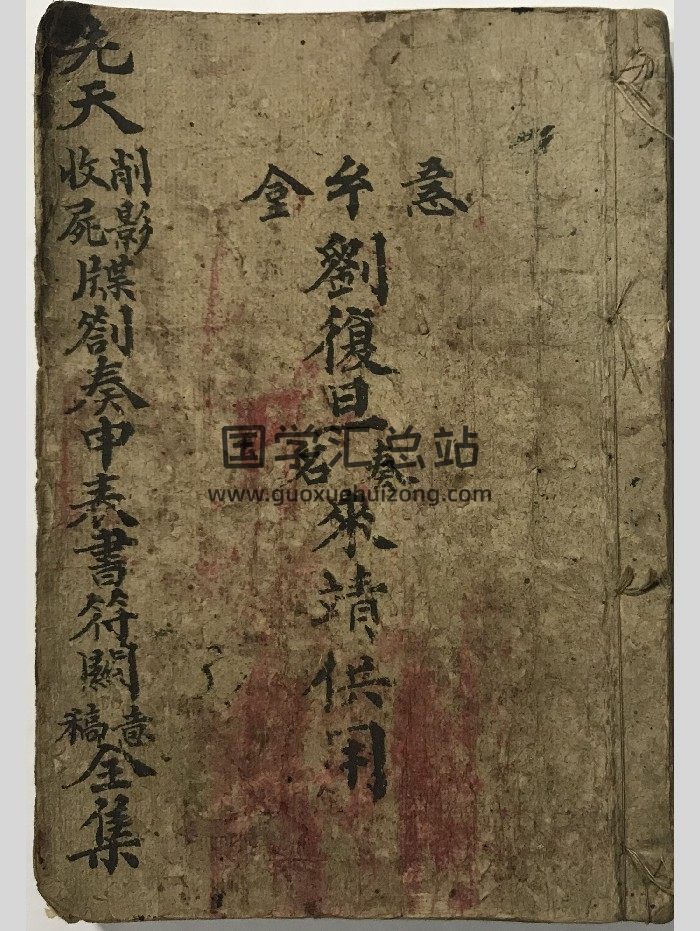 劉復旦奏名來靖供用
先天削影收屍牒劄奏申表書符關意稿全集
国学汇总站
www.guoxuehuizong.com